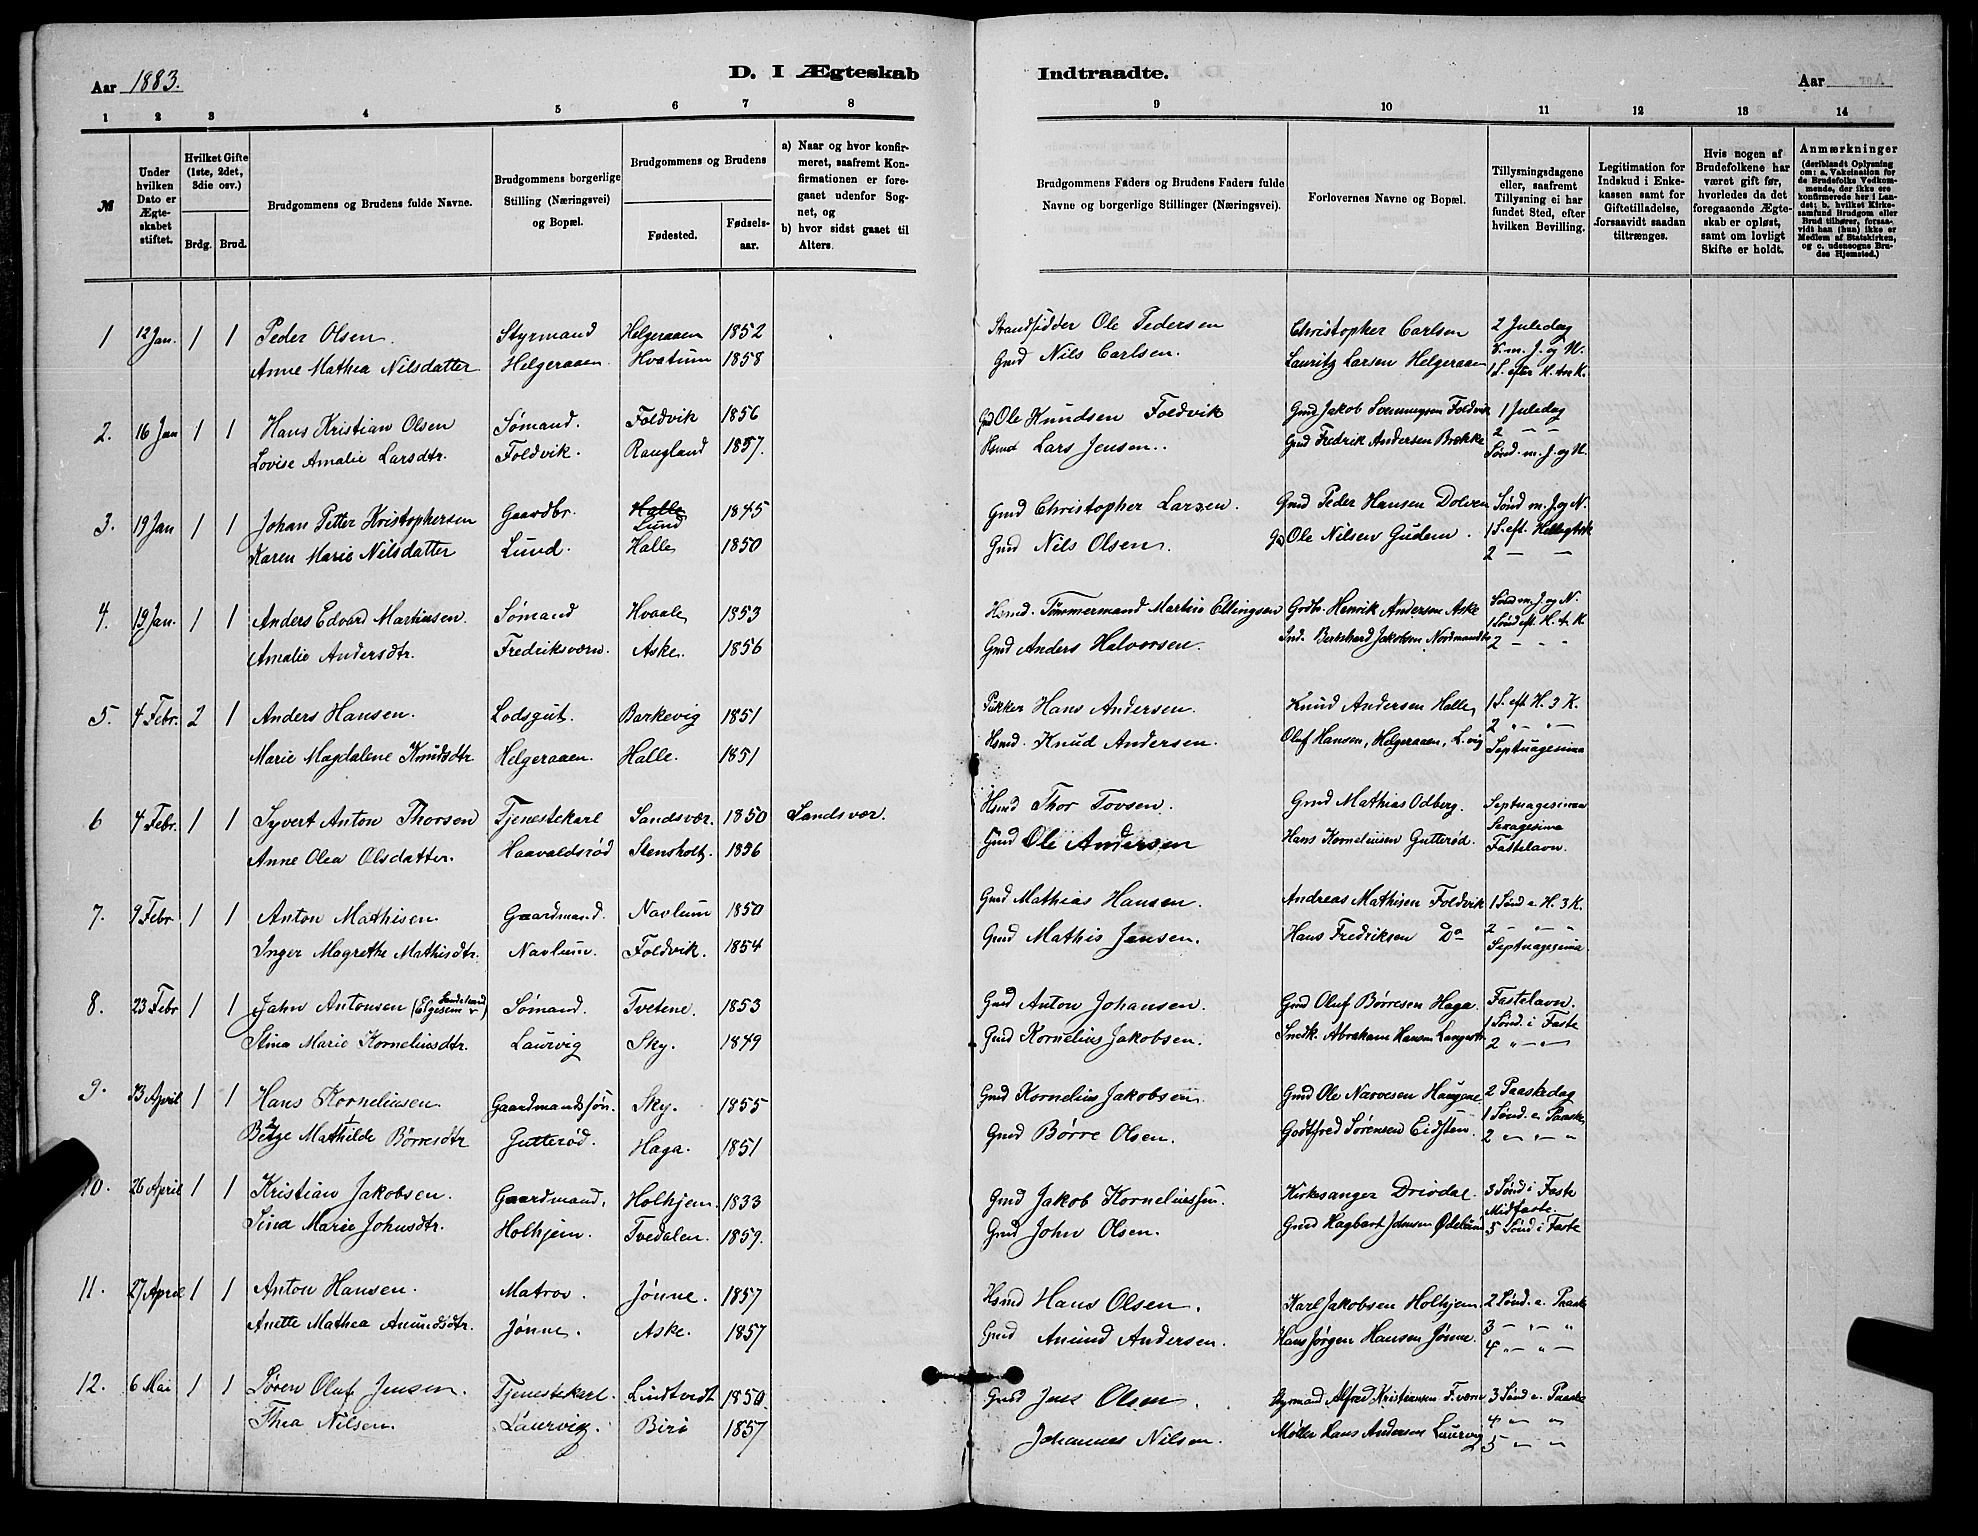 Aar 1883.
D. I Ægteskab
Indtraadte.
Aar
1 2 3 4 5 6 7 8 9 10 11 12 13 14
№
Under hvilken Dato er Ægteskabet stiftet.
Hvilket Gifte (1ste, 2det, 3die osv.)
Brdg. Brud.
Brudgommens og Brudens fulde Navne.
Brudgommens borgerlige Stilling (Næringsvei) og Bopæl.
Brudgommens og Brudens
Fødested. Fødselsaar.
a) Naar og hvor konfirmeret, saafremt Konfirmationen er foregaaet udenfor Sognet, og
b) hvor sidst gaaet til Alters.
Brudgommens Faders og Brudens Faders fulde Navne og borgerlige Stillinger (Næringsvei).
Forlovernes Navne og Bopæl.
Tillysningsdagene eller, saafremt Tillysning ei har fundet Sted, efter hvilken Bevilling.
Legitimation for Indskud i Enkekassen samt for Giftetilladelse, forsaavidt saadan tiltrænges.
Hvis nogen af Brudefolkene har været gift før, hvorledes da det foregaaende Ægteskab er opløst, samt om lovligt Skifte er holdt.
Anmærkninger (deriblandt Oplysning om: a. Vakcination for de Brudefolks Vedkommende, der ikke ere konfirmerede her i Landet; b. hvilket Kirkesamfund Brudgom eller Brud tilhører, forsaavidt han (hun) ikke er Medlem af Statskirken, og c. udensogns Brudes Hjemsted.)
1 12 Jan. 1 1 Peder Olsen. Styrmand Helgeraaen 1852 Strandsidder Ole Pedersen Christopher Carlsen 2 Juledag
S. m. J. og N.
Anne Mathea Nilsdatter Helgeraaen Hvatum 1858 Gmd Nils Carlsen. Lauritz Larsen Helgeraaen 1 S. efter H. tre K.
2. 16 Jan 1 1 Hans Kristian Olsen Sømand. Foldvik 1856 Gmd Ole Knudsen Foldvik Gmd Jakob Foldvik 1 Juledag
2 " "
Lovise Amalie Larsdtr. Foldvik. Raugland 1857. Hsmd Lars Jensen. Gmd Fredrik Andersen Brekke Sønd. m. J. og N.
3. 19 Jan 1 1 Johan Petter Kristophersen Gaardbr. Halle Lund 1845 Gmd Christopher Larsen. Gmd Peder Hansen Dolven Sønd m. J. og N.
1 S. eft.
Karen Marie Nilsdatter Lund. Halle 1850 Gmd Nils Olsen. Ole Nilsen Gudem. 2 — —
4. 19 Jan. 1 1 Anders Edvard Martinsen. Sømand Hvaale 1853 Hsmd. Tømmermand Martin Ellingsen Grdbr. Henrik Andersen Aske Sønd m. J. og N.
1 Sønd eft H. tr. K
Amalie Andersdtr. Fredriksværn. Aske. 1856 Gmd Anders Halvorsen. Ind. Jakobsen 2 — " "
5. 4 Febr. 2 1 Anders Hansen. Lodsgut. Barkevig 1851 Hans Andersen. Knud Andersen Halle 1 S. eft H. 3 K.
2 " — "
Marie Magdalene Knudsdtr. Helgeraaen. Halle. 1851 Hsmd. Knud Andersen. Oluf Hansen, Helgeraaen, L.vig Septuagesima
6 4 Febr. 1 1 Syvert Anton Thorsen Tjenestekarl Sandsvær. 1850 Sandsvær. Hsmd Thor Tovsen. Gmd Mathias Odberg. Septuagesima
Sexagesima
Anne Olea Olsdatter. Haavaldsrød Stensholt. 1856 Gmd Ole Andersen Hans Korneliusen Gutterød. Fastelavn.
7. 9 Febr. 1 1 Anton Mathisen Gaardmand. Navlum 1850 Gmd Mathias Hansen. Andreas Mathisen Foldvik 1 Sønd e. H. 3 K.
2 — " — "
Inger Magrethe Mathisdtr. Navlum. Foldvik. 1854 Gmd Mathis Jensen. Hans Fredriksen Do Septuagesima
8. 23 Febr 1 1 Jahn Antonsen (Elgesem Sandeherred) Sømand Tvetene. 1853 Gmd Anton Johansen. Gmd Oluf Børresen Haga. Fastelavn.
1 Sønd. i Faste
Stina Marie Korneliusdtr. Laurvig Sky. 1849 Gmd Kornelius Jakobsen. Snedk. Abraham Hansen 2 " — " —
9. 13 April 1 1 Hans Korneliusen Gaardmandssøn. Sky. 1855 Gmd Kornelius Jakobsen Gmd Ole Narvesen Haugene 2 Paaskedag
1 Sønd. e. Paaske
Mathilde Børresdtr Gutterød. Haga. 1851 Gmd Børre Olsen. Godtfred Sørensen Eidsten. 2 " — " — "
10. 26 April 1 1 Kristian Jakobsen. Gaardmand. Holhjem. 1833 Gmd Jakob Korneliussen. Kirkesanger Driodal. 3 Sønd i Faste
Midfaste.
Sina Marie Johnsdtr. Holhjem. Tvedalen. 1859. Gmd John Olsen. Gmd Hagbart Johnsen Ødelund 5 Sønd i Faste
11. 27 April 1 1 Anton Hansen. Matros. Jønne. 1857 Hsmd Hans Olsen. Karl Jakobsen Holhjem. 2 Sønd. e. Paaske
3 — " — "
Anette Mathea Amundsdtr. Jønne. Aske. 1857 Gmd Amund Andersen. Hans Jørgen Hansen Jønne. 4 " — " —
12. 6 Mai 1 1 Søren Oluf Jensen. Tjenestekarl. Lindtvedt 1850. Gmd Jens Olsen. Styrmand Alfred Kristiansen F.værn 3 Sønd e. Paaske
4 " — "
Thea Nilsen. Laurvig. Birø 1857 Johannes Nilsen. Møller Hans Andersen Laurvig 5 " — "